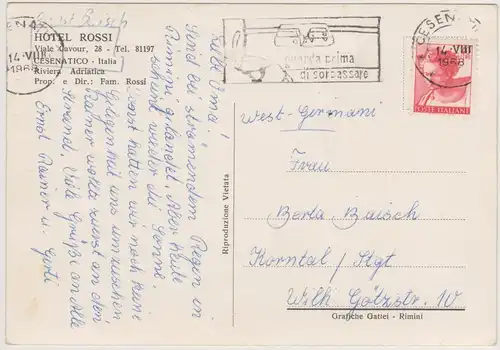 HOTEL ROSSI
Viale Cavour, 28 - Tel. 81197
CESENATICO - Italia
Riviera Adriatica
Prop. e Dir.: Fam. Rossi
14-VIII
1968
guarda prima
di sorpassare
CESENA
14-VIII
1968
POSTE ITALIANE
Liebe Oma!
Sind bei strömendem Regen in
Rimini gelandet. Aber heute
scheint wieder die Sonne.
Sonst hatten wir noch keine
Gelegenheit uns umzusehen.
Rainer wollte zuerst an den
Strand. Viele Grüße an Alle
Ernst Rainer u. Gerti
Riproduzione Vietata
West-Germani
Frau
Berta Baisch
Korntal / Stgt
Wilh. Götzstr. 10
Grafiche Gattei - Rimini